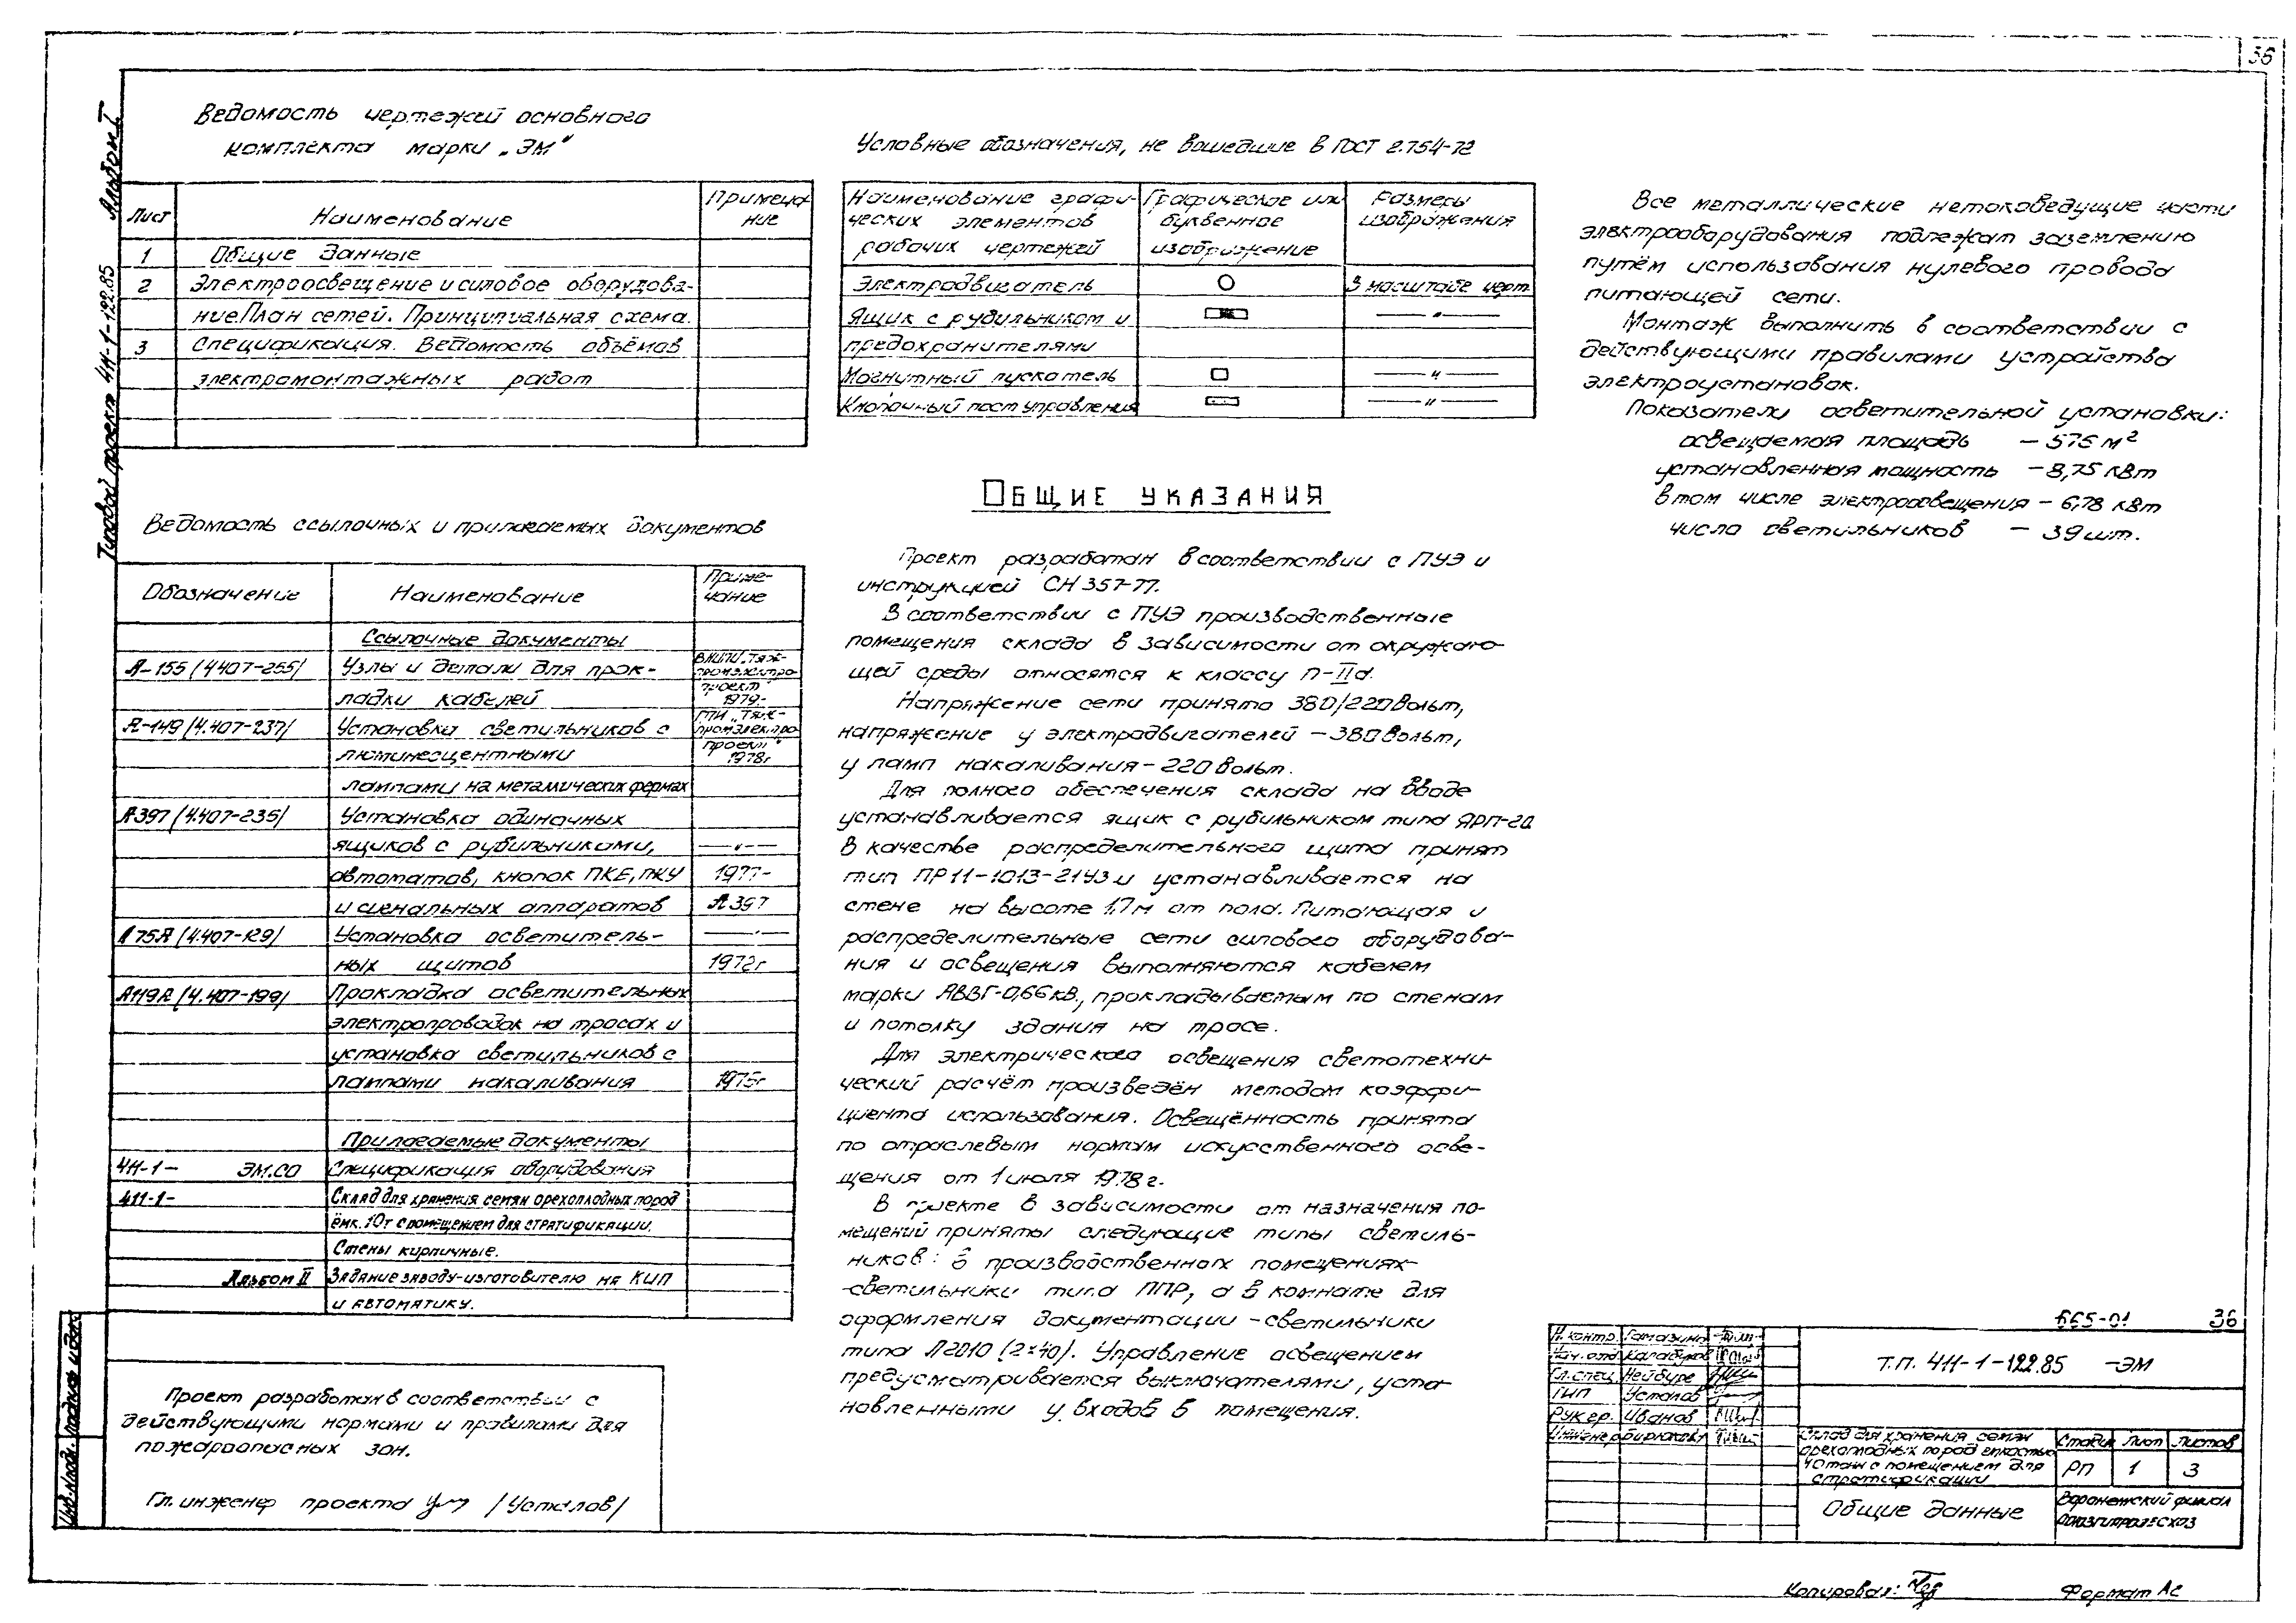 36
Альбом I
Типовой проект 411-1-122.85
Ведомость чертежей основного
комплекта марки „ЭМ"
Лист Наименование Примеча-
ние
1 Общие данные
2 Электроосвещение и силовое оборудова-
ние. План сетей. Принципиальная схема.
3 Спецификация. Ведомость объёмов
электромонтажных работ
Ведомость ссылочных и прилагаемых документов
Обозначение Наименование Приме-
чание
Ссылочные документы
А-155 (4.407-255) Узлы и детали для прок-
ладки кабелей
ВНИПИ „Тяж-
промэлектро-
проект"
1979г
А-149 (4.407-237) Установка светильников с
люминесцентными
лампами на металлических фермах
ГПИ „Тяж-
промэлектро
проект"
1978г
А397 (4.407-235) Установка одиночных
ящиков с рубильниками, —"—
автоматов, кнопок ПКЕ, ПКУ 1977г
и сигнальных аппаратов А397
А75А (4.407-129) Установка осветитель- —"—
ных щитов 1972г
А119А (4.407-199) Прокладка осветительных
электропроводок на тросах и
установка светильников с
лампами накаливания 1975г
Прилагаемые документы
411-1- ЭМ.СО Спецификация оборудования
411-1- Склад для хранения семян орехоплодных пород
ёмк. 10т с помещением для стратификации.
Стены кирпичные.
Альбом II Задание заводу-изготовителю на КИП
и автоматику.
Проект разработан в соответствии с
действующими нормами и правилами для
пожароопасных зон.
Гл. инженер проекта /Усталов/
Условные обозначения, не вошедшие в ГОСТ 2.754-72
Наименование графи-
ческих элементов
рабочих чертежей
Графическое или
буквенное
изображение
Размеры
изображения
Электродвигатель В масштабе черт.
Ящик с рубильником и —"—
предохранителями
Магнитный пускатель —"—
Кнопочный пост управления —"—
Общие указания
Проект разработан в соответствии с ПУЭ и
инструкцией СН 357-77.
В соответствии с ПУЭ производственные
помещения склада в зависимости от окружаю-
щей среды относятся к классу П-IIа.
Напряжение сети принято 380/220 Вольт,
напряжение у электродвигателей – 380 Вольт,
у ламп накаливания – 220 Вольт.
Для полного обеспечения склада на вводе
устанавливается ящик с рубильником типа ЯРП-20
В качестве распределительного щита принят
тип ПР11-1013-21У3 и устанавливается на
стене на высоте 1,7м от пола. Питающая и
распределительные сети силового оборудова-
ния и освещения выполняются кабелем
марки АВВГ-0,66кВ, прокладываемым по стенам
и потолку здания на тросе.
Для электрического освещения светотехни-
ческий расчёт произведён методом коэффи-
циента использования. Освещённость принята
по отраслевым нормам искусственного осве-
щения от 1 июля 1978 г.
В проекте в зависимости от назначения по-
мещений приняты следующие типы светиль-
ников: в производственных помещениях-
-светильники типа ППР, а в комнате для
оформления документации – светильники
типа Л2010 (2×40). Управление освещением
предусматривается выключателями, уста-
новленными у входов в помещения.
Все металлические нетоковедущие части
электрооборудования подлежат заземлению
путём использования нулевого провода
питающей сети.
Монтаж выполнить в соответствии с
действующими правилами устройства
электроустановок.
Показатели осветительной установки:
освещаемая площадь – 576 м²
установленная мощность – 8,75 кВт
в том числе электроосвещения – 6,78 кВт
число светильников – 39 шт.
665-01 36
Н.контр.
Нач.отд
Гл.спец. Нейбурс
ГИП Усталов
Рук.гр. Иванов
Инженер
Т.П. 411-1-122.85 -ЭМ
Склад для хранения семян
орехоплодных пород емкостью
10тонн с помещением для
стратификации
Стадия Лист Листов
РП 1 3
Общие данные
Воронежский филиал
Союзгипролесхоз
Копировал:
Формат А2